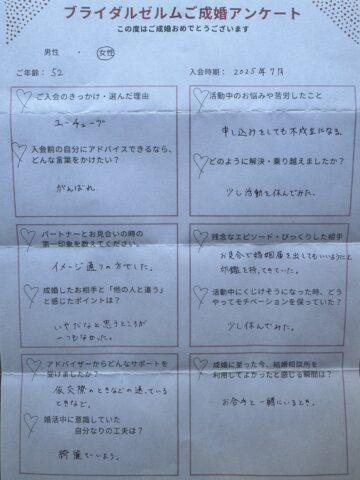 ブライダルゼルムご成婚アンケート
この度はご成婚おめでとうございます
男性 ・ 女性
ご年齢：52
入会時期：2025年7月
ご入会のきっかけ・選んだ理由
ユーチューブ
入会前の自分にアドバイスできるなら、
どんな言葉をかけたい？
がんばれ
活動中のお悩みや苦労したこと
申し込みをしても不成立になる。
どのように解決・乗り越えましたか？
少し活動を休んでみた。
パートナーとお見合いの時の
第一印象を教えてください。
イメージ通りの方でした。
成婚したお相手と「他の人と違う」
と感じたポイントは？
いやだなと思うところが
一つもなかった。
残念なエピソード・びっくりした相手
お見合で婚姻届を出してもいいようにと
印鑑を持ってきていた。
活動中にくじけそうになった時、どう
やってモチベーションを保っていた？
少し休んでみた。
アドバイザーからどんなサポートを
受けましたか？
仮交際のときなどの迷っている
ときなど。
婚活中に意識していた
自分なりの工夫は？
綺麗でいよう。
成婚に至った今、結婚相談所を
利用してよかったと感じる瞬間は？
お相手と一緒にいるとき。